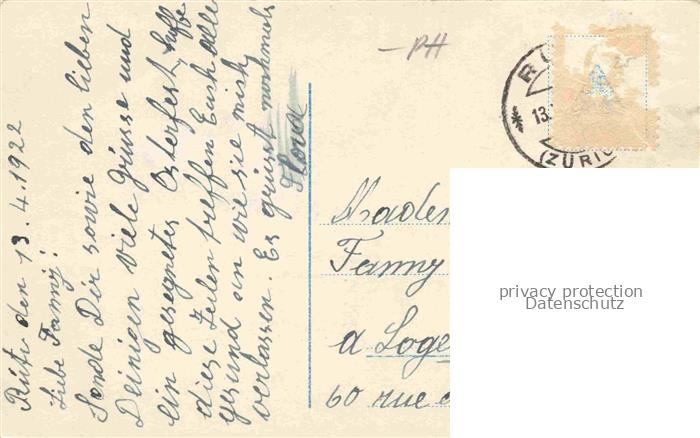 Rüti den 13.4.1922
Liebe Fanny!
Sende Dir sowie den lieben
Deinigen viele Grüsse und
ein gesegnetes Osterfest, hoffe
diese Zeilen treffen Euch alle
gesund an wie sie mich
verlassen. Es grüsst nochmals
Flora
-PH
R
13.
(ZÜRIC
A
Madem
Fanny
a Loge
60 rue
privacy protection
Datenschutz